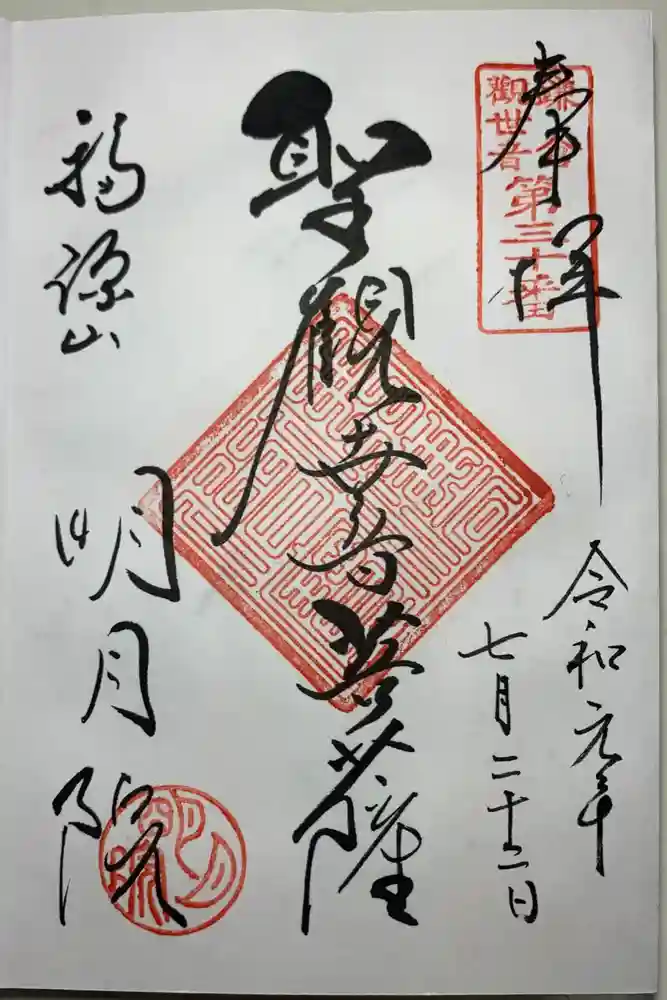 奉拝
鎌倉
觀世音
第三十番
令和元年
七月二十二日
聖観世音菩薩
福源山
明月院
明月院